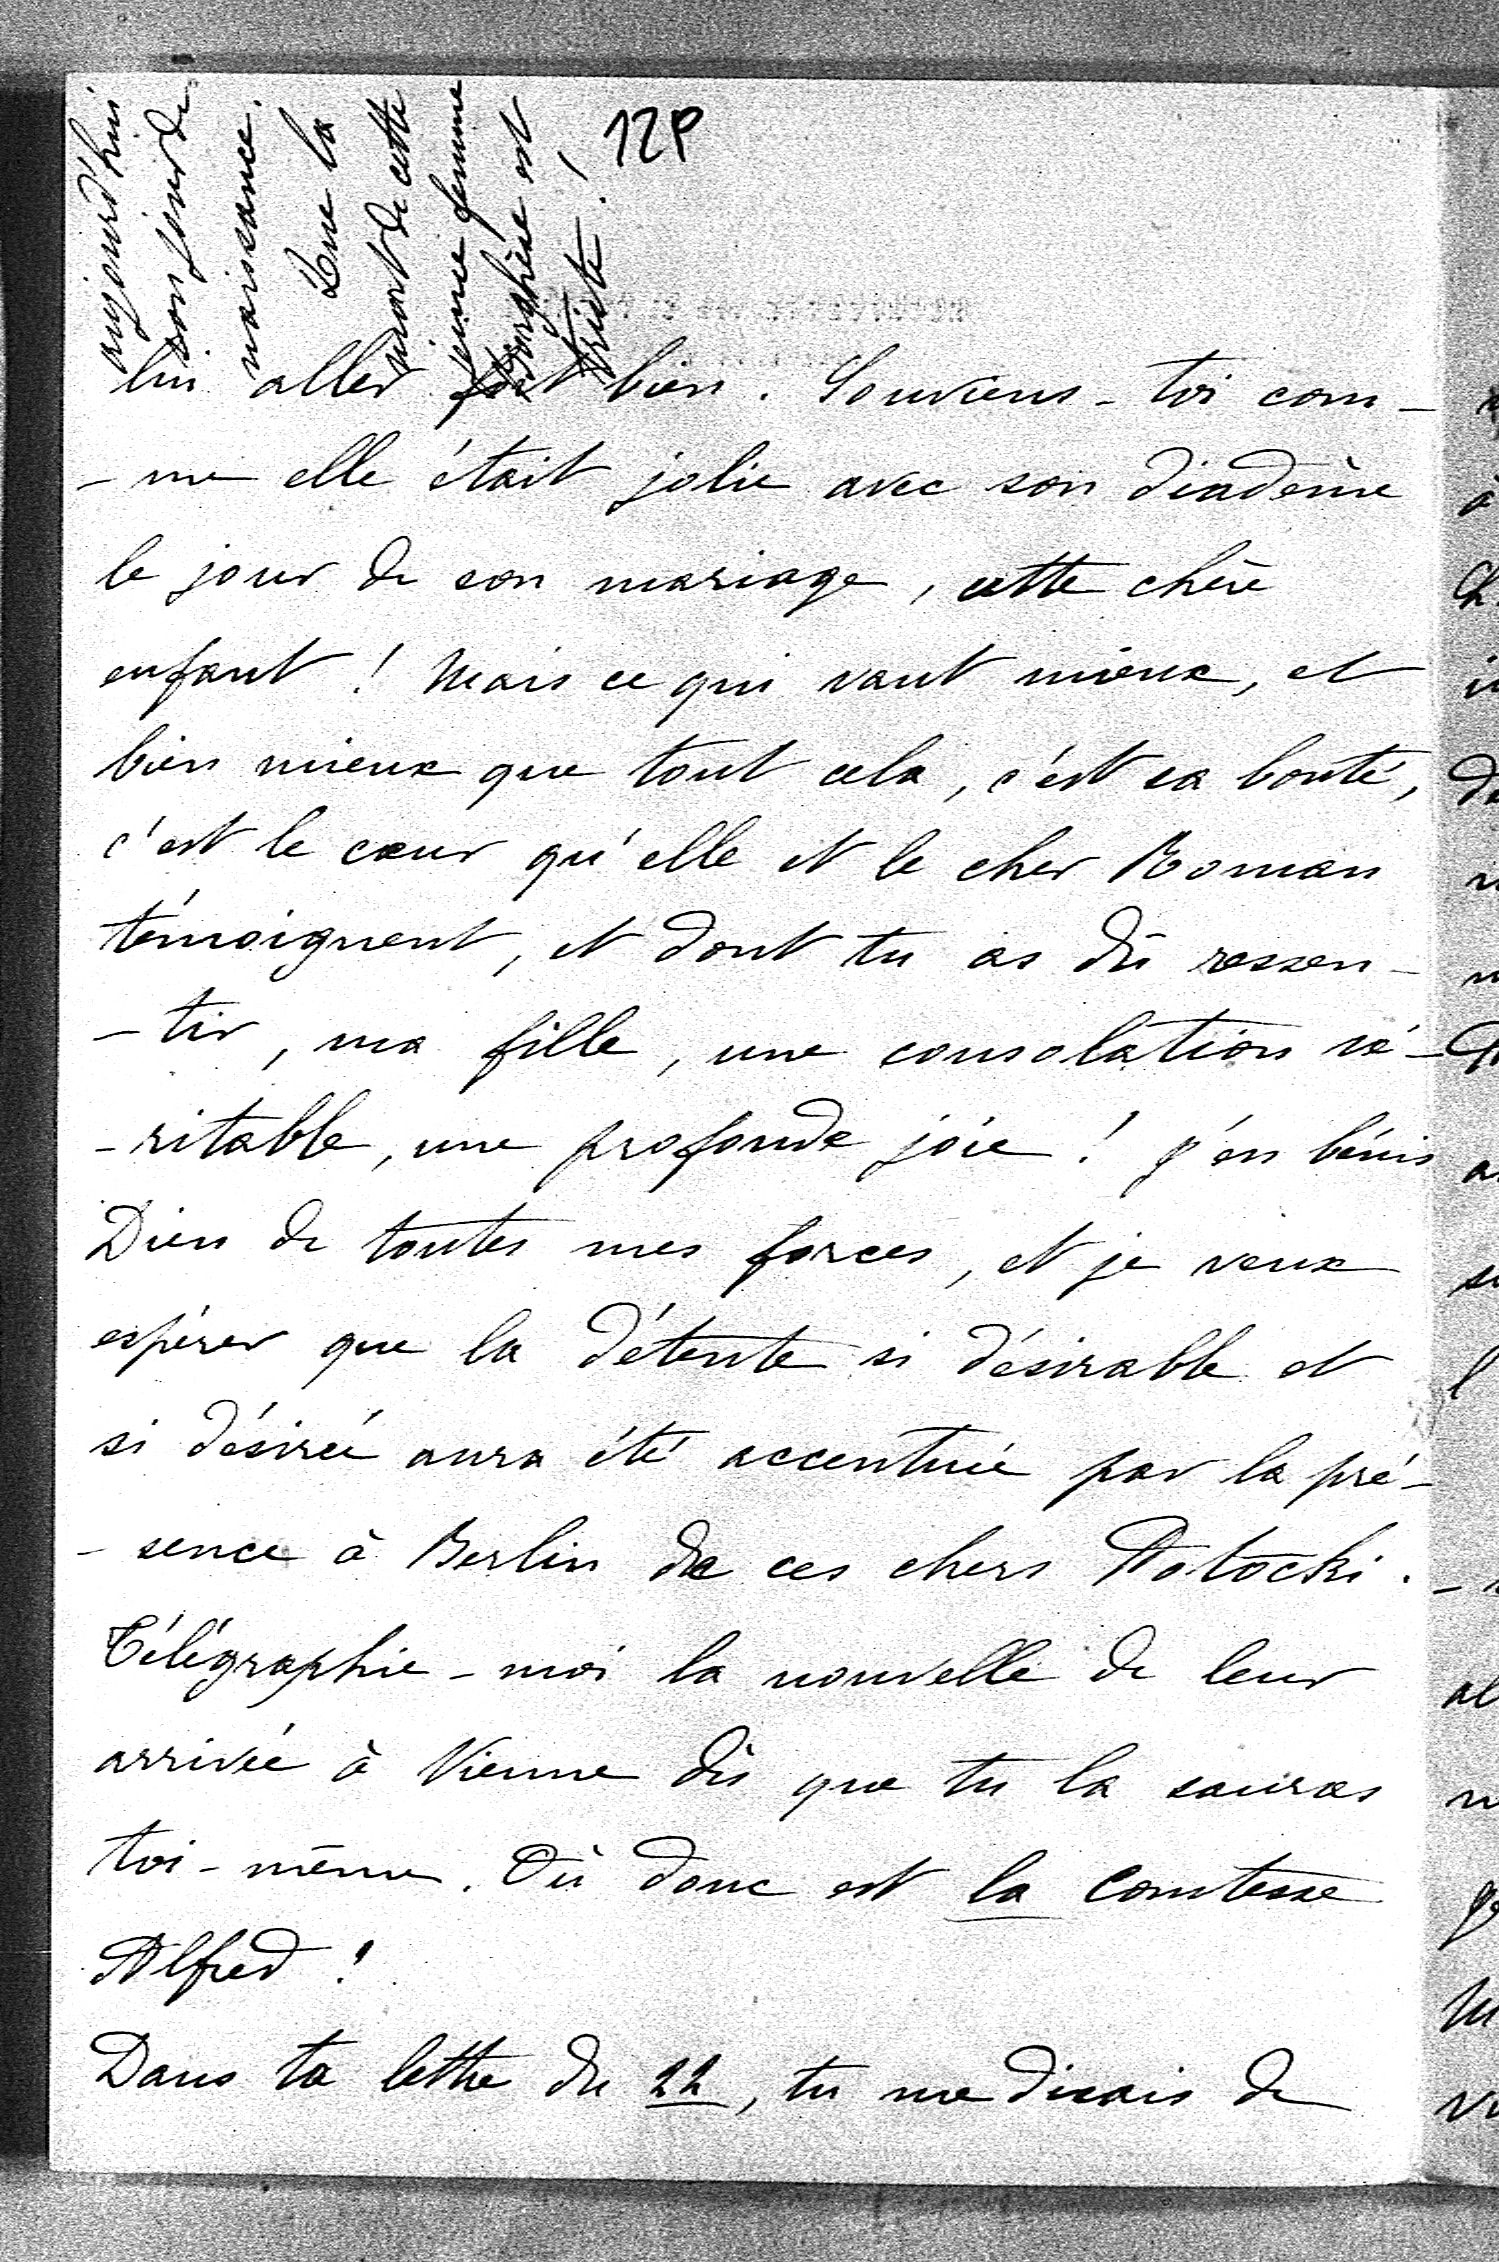 aujourd'hui
son jour de
naissance.
Que la
mort de cette
jeune femme
Borghèse est
triste !
12P
lui aller fort bien. Souviens-toi com-
-me elle était jolie avec son diadème
le jour de son mariage, cette chère
enfant ! Mais ce qui vaut mieux, et
bien mieux que tout cela, c'est sa bonté,
c'est le cœur qu'elle et le cher Roman
témoignent, et dont tu as dû ressen-
-tir, ma fille, une consolation vé-
-ritable, une profonde joie ! J'en bénis
Dieu de toutes mes forces, et je veux
espérer que la détente si désirable et
si désirée aura été accentuée par la pré-
-sence à Berlin de ces chers Potocki.
Télégraphie-moi la nouvelle de leur
arrivée à Vienne dès que tu la sauras
toi-même. Où donc est la comtesse
Alfred ?
Dans ta lettre du 22, tu me disais de